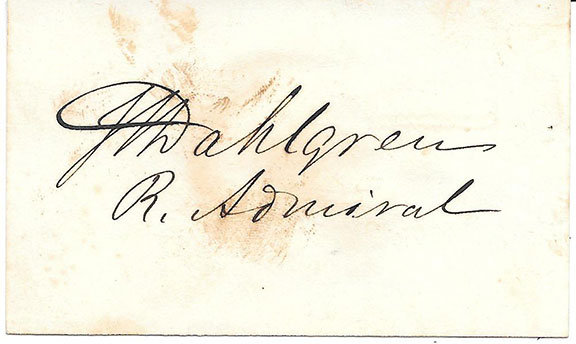 JADahlgren
R. Admiral